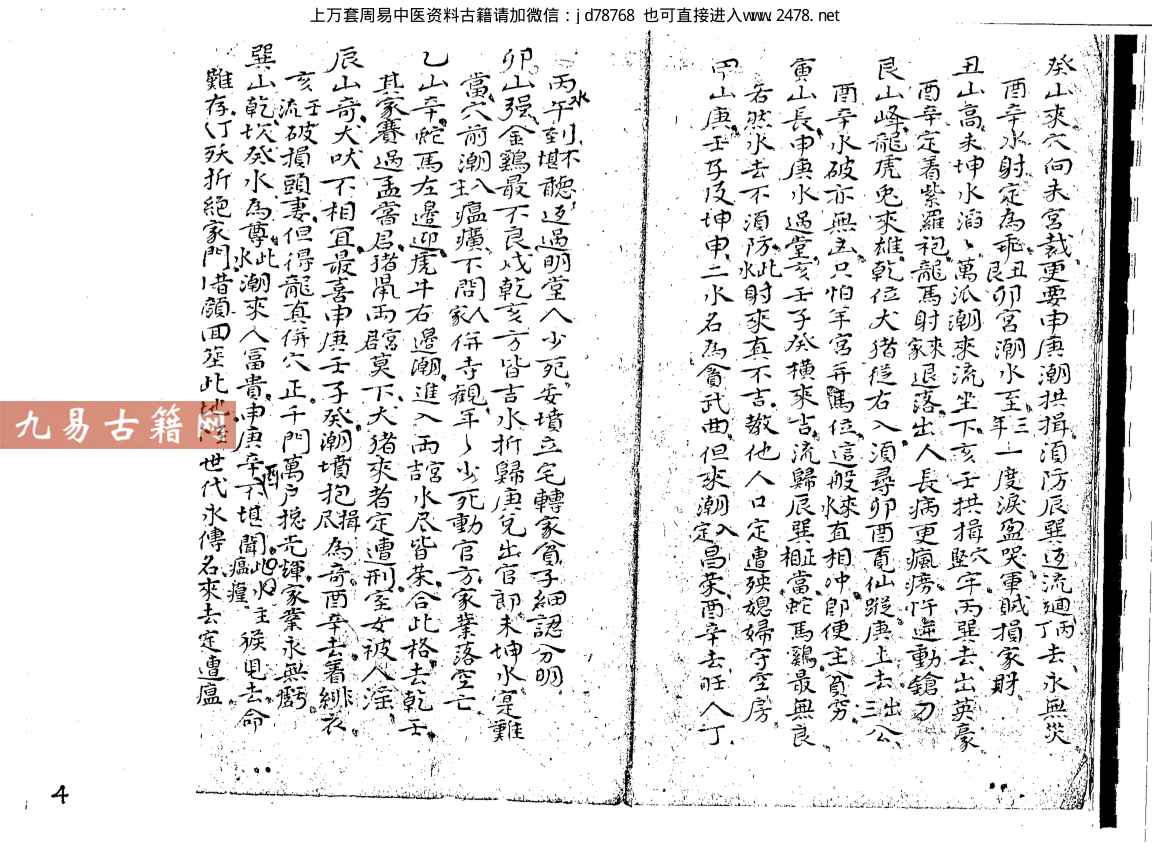 上万套周易中医资料古籍请加微信：jd78768 也可直接进入www.2478.net
癸山來穴向未宮裁更要申庚潮拱揖須防辰巽返流廻丙丁去永無災
酉辛水射定為乖丑艮卯宮潮水至三年一度淚盈哭軍賊損家財
丑山高未坤水滔〻萬派潮來流坐下亥壬拱揖穴堅牢丙巽去出英豪
酉辛定着紫羅袍龍馬射來家退落出人長病更瘋癆忤逆動鎗刀
艮山峰龍虎兎來雄乾位犬猪從右入須尋卯酉覓仙蹤庚上去出三公
酉辛水破亦無凶只怕羊宮并馬位這般來水直相冲即便主貧穷
寅山長申庚水過堂亥壬子癸橫來吉流歸辰巽正相當蛇馬鷄最無良
若然水去不須防此水射來真不吉教他人口定遭殃媳婦守空房
甲山庚壬子及坤申二水名為貪武曲但來潮入定昌榮酉辛去旺人丁
丙午水到不堪聽返過明堂人少死安墳立宅轉家貧子細認分明
卯山强金鷄最不良戌乾亥方皆吉水折歸庚兌出官郎未坤水寔難
當穴前潮入主瘟癀不問家人併寺觀年〻少死動官方家業落空亡
乙山辛蛇馬左邊迎虎牛右邊潮進入兩宮吉水尽皆荣合此格去乾壬
其家賽過孟嘗君猪鼠兩宮君莫下犬猪來者定遭刑室女被人淫
辰山奇犬吠不相宜最喜申庚壬子癸潮墳抱揖尽為奇酉辛去着緋衣
亥壬流破損頭妻但得龍真併穴正千門萬户摠光輝家業永無虧
巽山乾坎癸水為尊此水潮來人富貴申庚辛酉不堪聞此水主瘟瘽猴鬼去命
難存人丁殀折絕家門
九易古籍网
世代永傳名來去定遭瘟
4